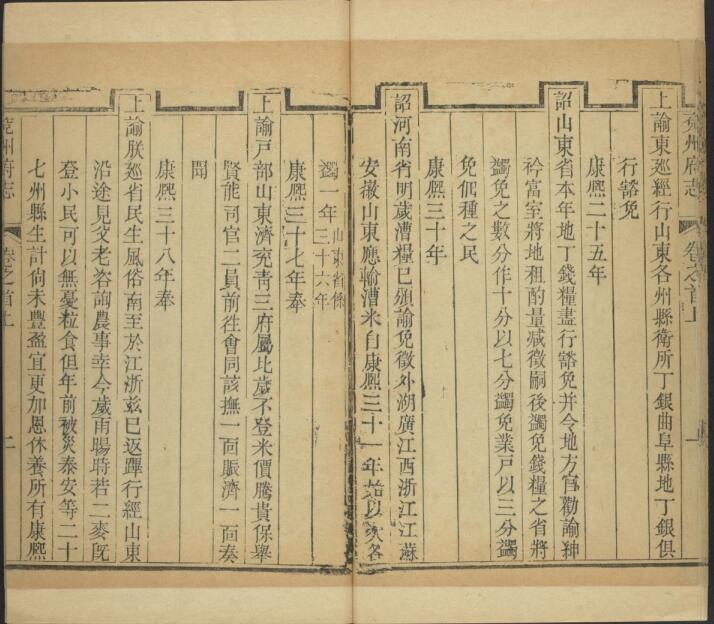 兗州府志 卷之首上 一
上諭東巡經行山東各州縣衛所丁銀曲阜縣地丁銀俱
行豁免
康熙二十五年
詔山東省本年地丁錢糧盡行豁免并令地方官勸諭紳
衿富室將地租酌量減徵嗣後蠲免錢糧之省將
蠲免之數分作十分以七分蠲免業戶以三分蠲
免佃種之民
康熙三十年
詔河南省明歲漕糧已頒諭免徵外湖廣江西浙江江蘇
安徽山東應輸漕米自康熙三十一年始以次各
蠲一年山東省係三十六年
康熙三十七年奉
上諭戶部山東濟兗青三府屬比歲不登米價騰貴保舉
賢能司官二員前往會同該撫一面賑濟一面奏
聞
康熙三十八年奉
上諭朕巡省民生風俗南至於江浙兹已返蹕行經山東
沿途見父老咨詢農事幸今歲雨暘時若二麥既
登小民可以無憂粒食但年前被災泰安等二十
七州縣生計尙未豐盈宜更加恩休養所有康熙
兗州府志 卷之首上 二